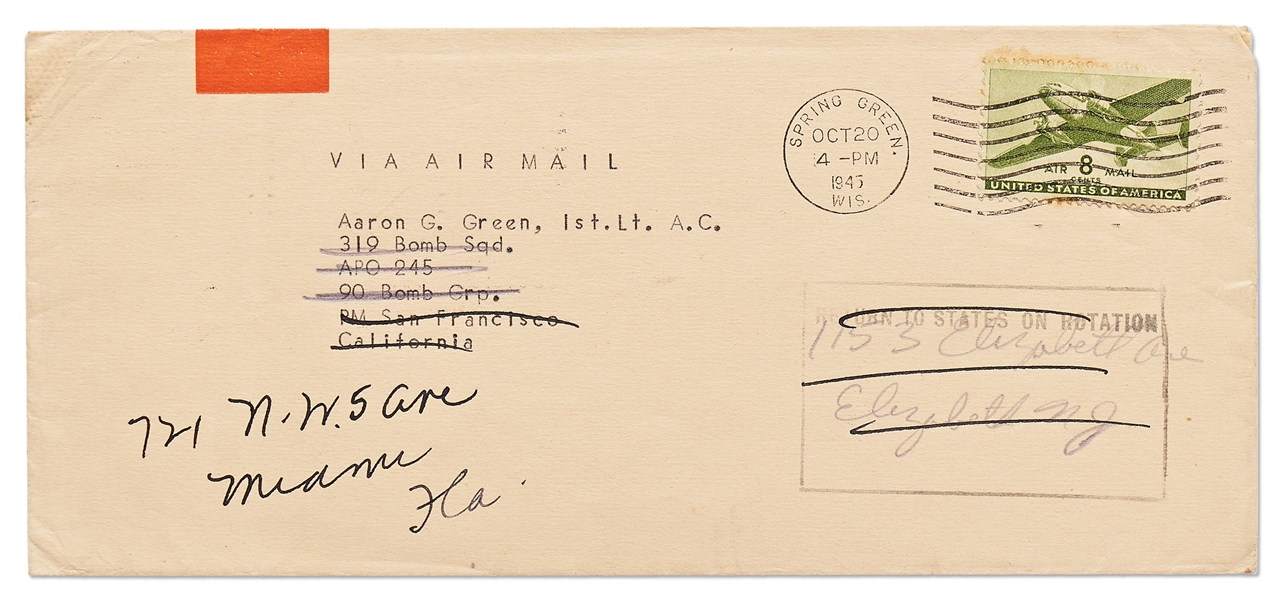 SPRING GREEN.
OCT 20
4 - PM
1945
WIS.
AIR 8 MAIL
CENTS
UNITED STATES OF AMERICA
VIA AIR MAIL
Aaron G. Green, 1st.Lt. A.C.
319 Bomb Sqd.
APO 245
90 Bomb Grp.
PM San Francisco
California
RETURN TO STATES ON ROTATION
1153 Elizabeth Ave
Elizabeth NJ
721 N.W. 5 Ave
Miami
Fla.